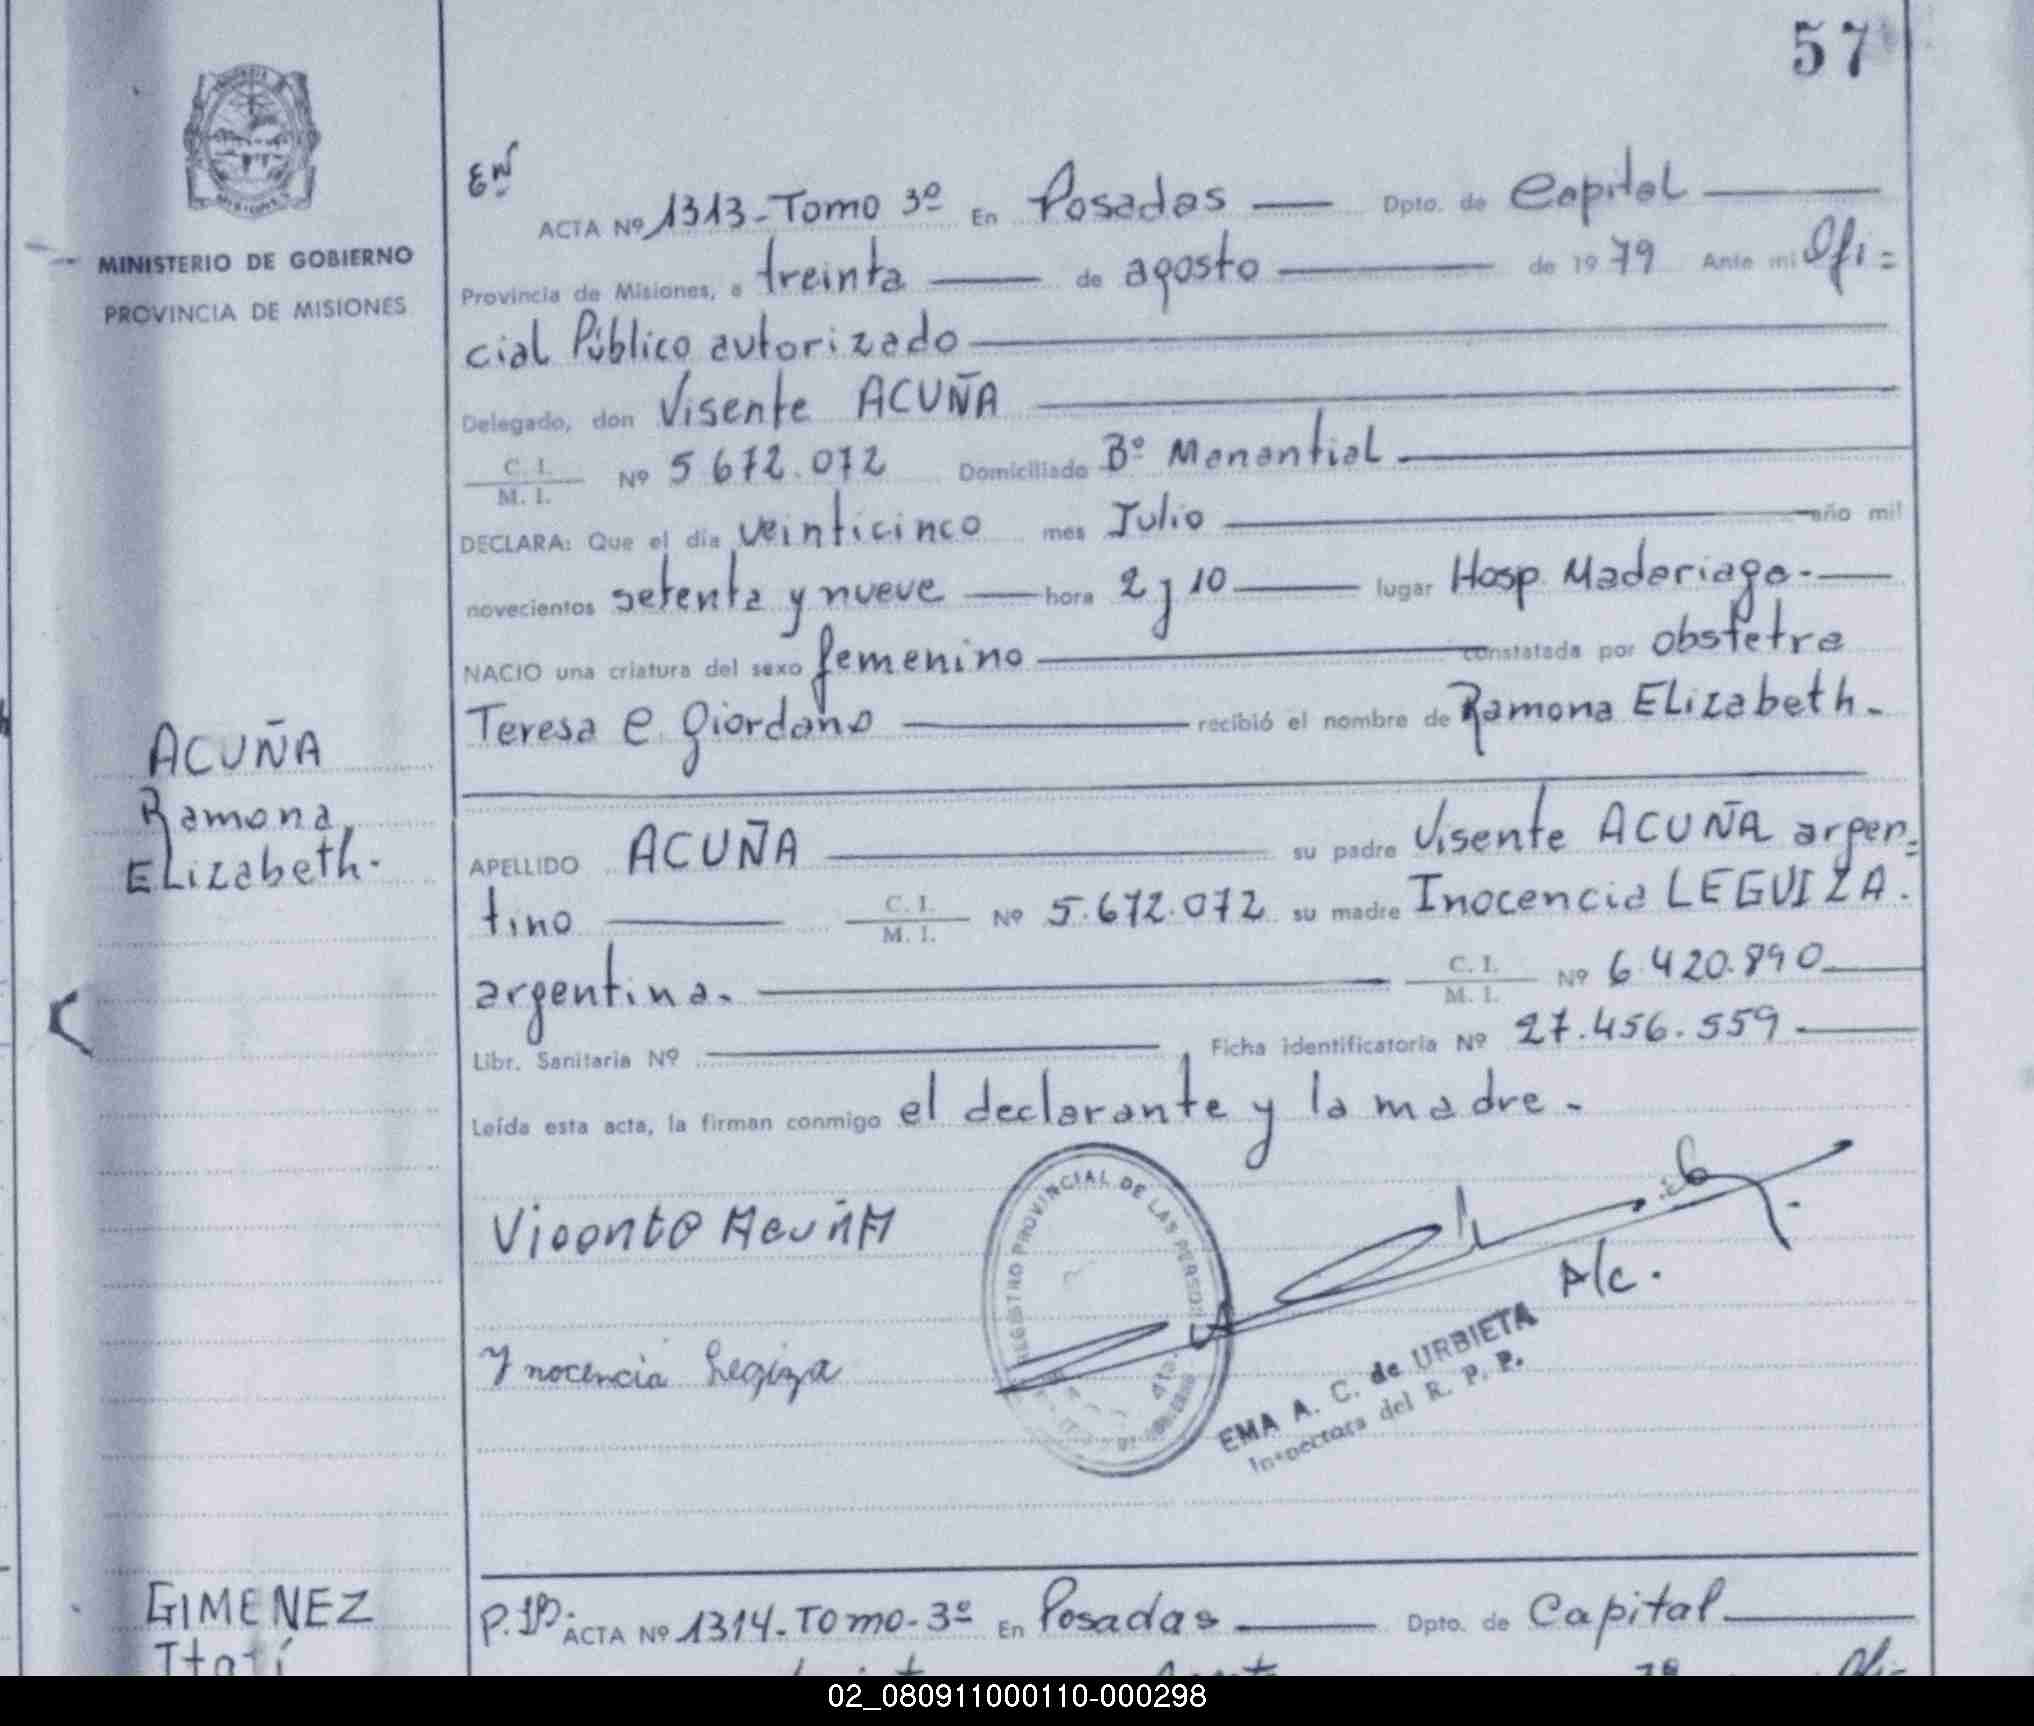 57
MINISTERIO DE GOBIERNO
PROVINCIA DE MISIONES
ACTA Nº 1313-Tomo 3º En Posadas Dpto. de Capital
Provincia de Misiones, a treinta de agosto de 1979 Ante mi Ofi=
cial Público autorizado
Delegado, don Visente ACUÑA
C. I.
M. I. Nº 5672.072 Domiciliado Bº Manantial
DECLARA: Que el día veinticinco mes Julio año mil
novecientos setenta y nueve hora 2 y 10 lugar Hosp. Madariaga.-
NACIO una criatura del sexo femenino constatada por obstetra
Teresa e. Giordano recibió el nombre de Ramona ELizabeth.
ACUÑA
Ramona
ELizabeth.
APELLIDO ACUÑA su padre Visente ACUÑA argen=
tino C. I.
M. I. Nº 5.672.072 su madre Inocencia LEGUIZA.
argentina. C. I.
M. I. Nº 6.420.890
Libr. Sanitaria Nº Ficha identificatoria Nº 27.456.559.
Leída esta acta, la firman conmigo el declarante y la madre.
Vicente AcuñA
Ynocencia Legiza
REGISTRO PROVINCIAL DE LAS PERSONAS
A/c.
EMA A. C. de URBIETA
Inspectora del R. P. P.
GIMENEZ
Itatí
ACTA Nº 1314-Tomo-3º En Posadas Dpto. de Capital
02_080911000110-000298